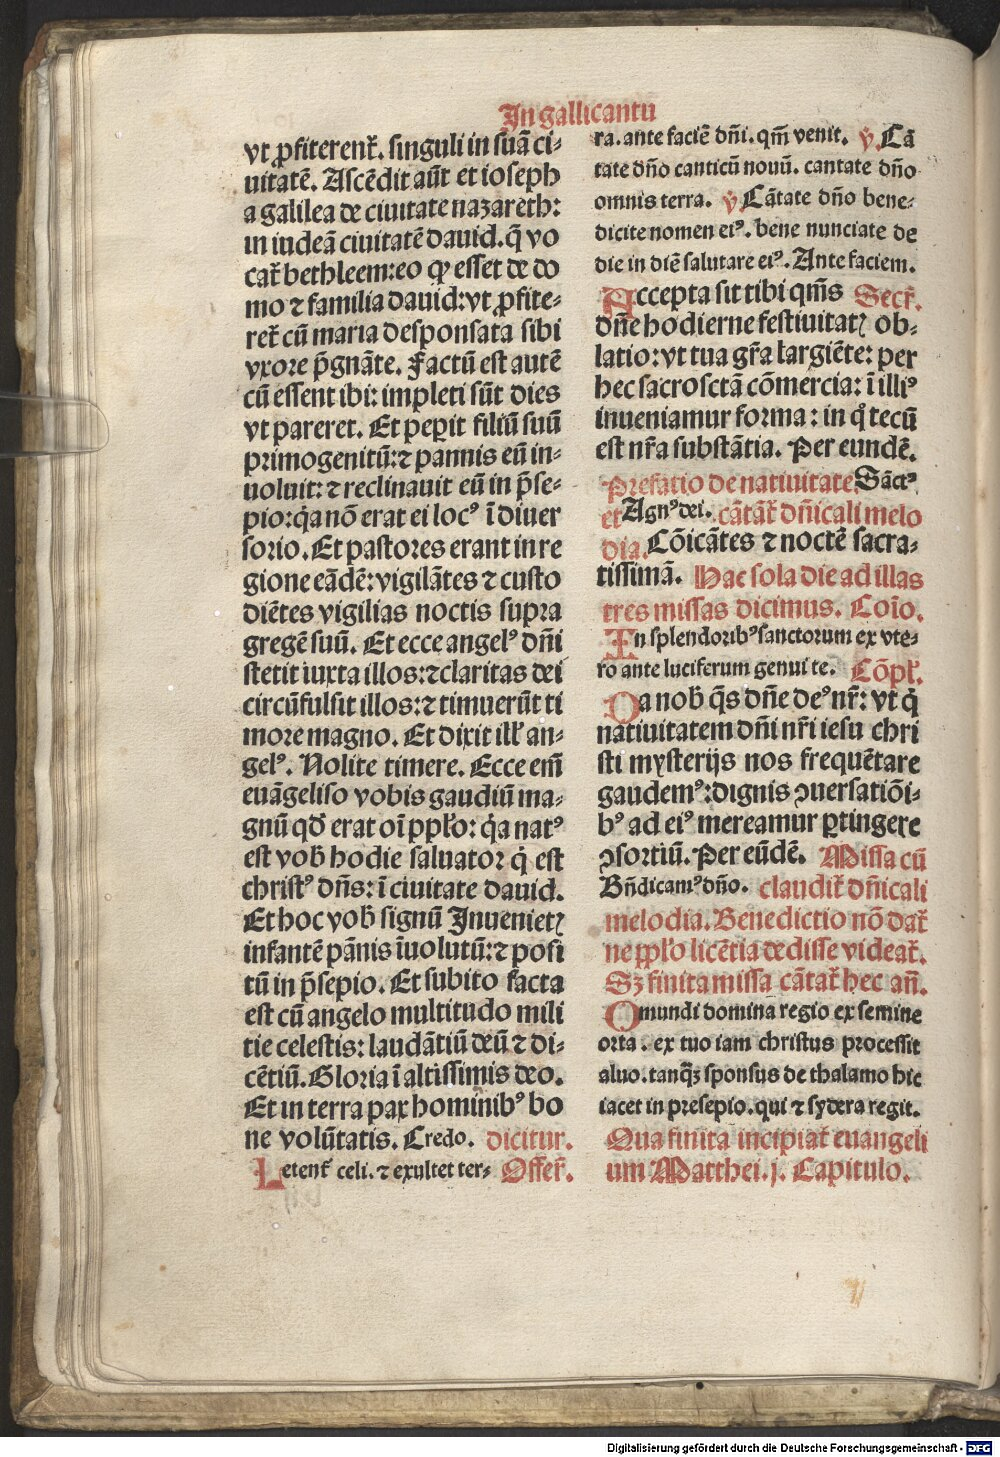 In gallicantu
vt ꝓfiterent̃. singuli in suã ci-
uitatẽ. Ascẽdit aũt et ioseph
a galilea de ciuitate nazareth:
in iudeã ciuitatẽ dauid. q̃ vo
cat̃ bethleem: eo ꝙ esset de do
mo ⁊ familia dauid: vt ꝓfite-
ret̃ cũ maria desponsata sibi
vxore p̃gnãte. Factũ est autẽ
cũ essent ibi: impleti sũt dies
vt pareret. Et peperit filiũ suũ
primogenitũ: ⁊ pannis eũ in-
uoluit: ⁊ reclinauit eũ in p̃se-
pio: q̃a nõ erat ei locꝰ ĩ diuer
sorio. Et pastores erant in re
gione eãdẽ: vigilãtes ⁊ custo
diẽtes vigilias noctis supra
gregẽ suũ. Et ecce angelꝰ dñi
stetit iuxta illos: ⁊ claritas dei
circũfulsit illos: ⁊ timuerũt ti
more magno. Et dixit ill̃ an-
gelꝰ. Nolite timere. Ecce em̃
euãgeliso vobis gaudiũ ma-
gnũ qđ erat oĩ ppl̃o: q̃a natꝰ
est vob̃ hodie saluator q̃ est
christꝰ dñs: ĩ ciuitate dauid.
Et hoc vob̃ signũ Inuenietꝭ
infantẽ pãnis ĩuolutũ: ⁊ posi
tũ in p̃sepio. Et subito facta
est cũ angelo multitudo mili
tie celestis: laudãtiũ deũ ⁊ di-
cẽtiũ. Gloria ĩ altissimis deo.
Et in terra pax hominibꝰ bo
ne volũtatis. Credo. dicitur.
Letent̃ celi. ⁊ exultet ter- Offer̃.
ra. ante faciẽ dñi. qm̃ venit. ℣. Cã
tate dño canticũ nouũ. cantate dño
omnis terra. ℣ Cãtate dño bene-
dicite nomen eiꝰ. bene nunciate de
die in diẽ salutare eiꝰ. Ante faciem.
Accepta sit tibi qm̃s Secr̃.
dñe hodierne festiuitatꝭ ob-
latio: vt tua gr̃a largiẽte: per
hec sacrosctã cõmercia: ĩ illiꝰ
inueniamur forma: in q̊ tecũ
est nr̃a substãtia. Per eundẽ.
Prefatio de natiuitate. Sãctꝰ
et Agnꝰ dei. cãtãt̃ dñicali melo
dia. Cõicãtes ⁊ noctẽ sacra-
tissimã. Hac sola die ad illas
tres missas dicimus. Coĩo.
In splendoribꝰ sanctorum ex vte-
ro ante luciferum genui te. Cõpl̃.
Da nob̃ q̃s dñe deꝰ nr̃: vt q̃
natiuitatem dñi nr̃i iesu chri
sti mysterijs nos frequẽtare
gaudemꝰ: dignis ꝯuersatiõi-
bꝰ ad eiꝰ mereamur ꝑtingere
ꝯsortiũ. Per eũdẽ. Missa cũ
Bñdicamꝰ dño. claudit̃ dñicali
melodia. Benedictio nõ dat̃
ne ppl̃o licẽtia dedisse videat̃.
Sꝫ finita missa cãtat̃ hec añ.
O mundi domina regio ex semine
orta. ex tuo iam christus processit
aluo. tanqꝫ sponsus de thalamo hic
iacet in presepio. qui ⁊ sydera regit.
Qua finita incipiat̃ euangeli
um Matthei. j. Capitulo.
Digitalisierung gefördert durch die Deutsche Forschungsgemeinschaft - DFG